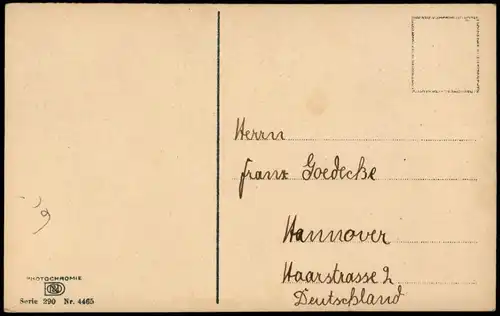 Herrn
Franz Goedecke
Hannover
Haarstrasse 2
Deutschland
PHOTOCHROMIE
Serie 390 Nr. 4465